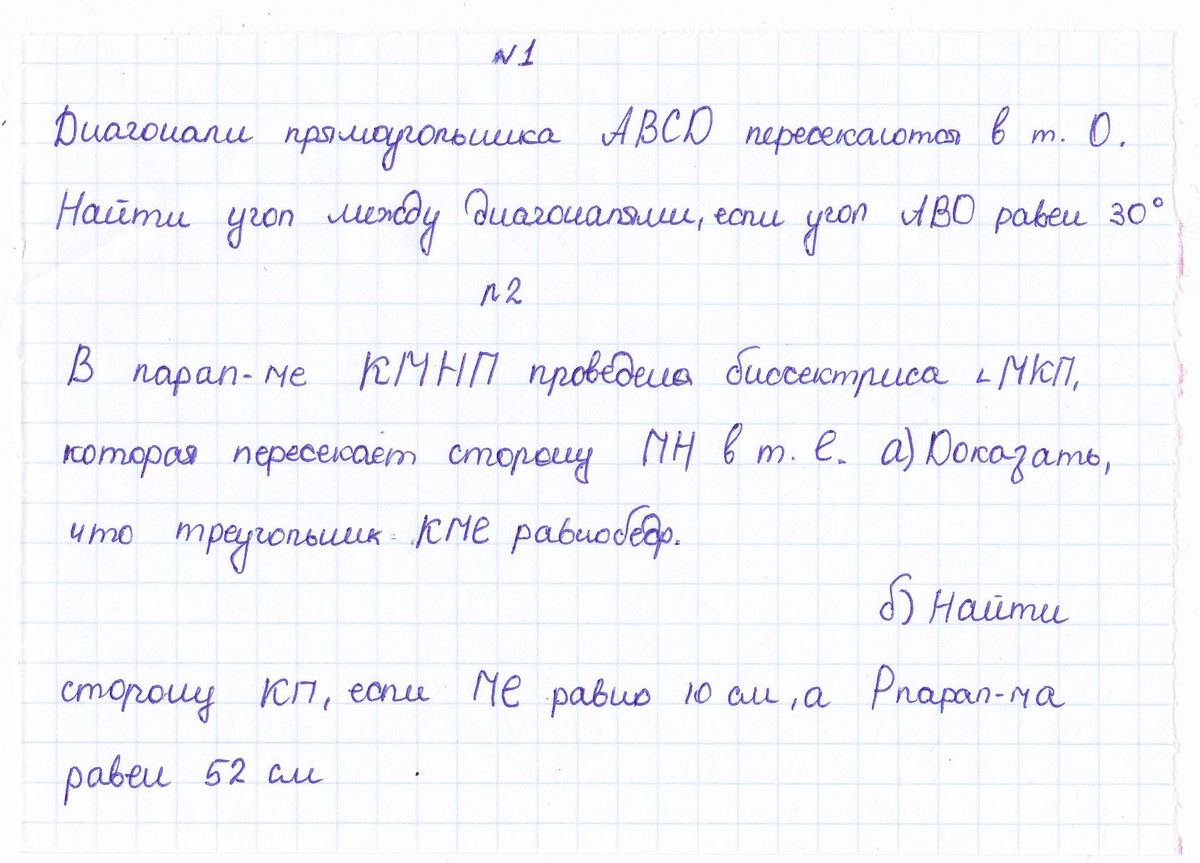 №1
Диагонали прямоугольника ABCD пересекаются в т. О.
Найти угол между диагоналями, если угол ABO равен 30°
№2
В парал-ме КМНП проведена биссектриса ∠МКП,
которая пересекает сторону МН в т. Е. а) Доказать,
что треугольник КМЕ равнобедр.
б) Найти
сторону КП, если МЕ равно 10 см, а Pпарал-ма
равен 52 см